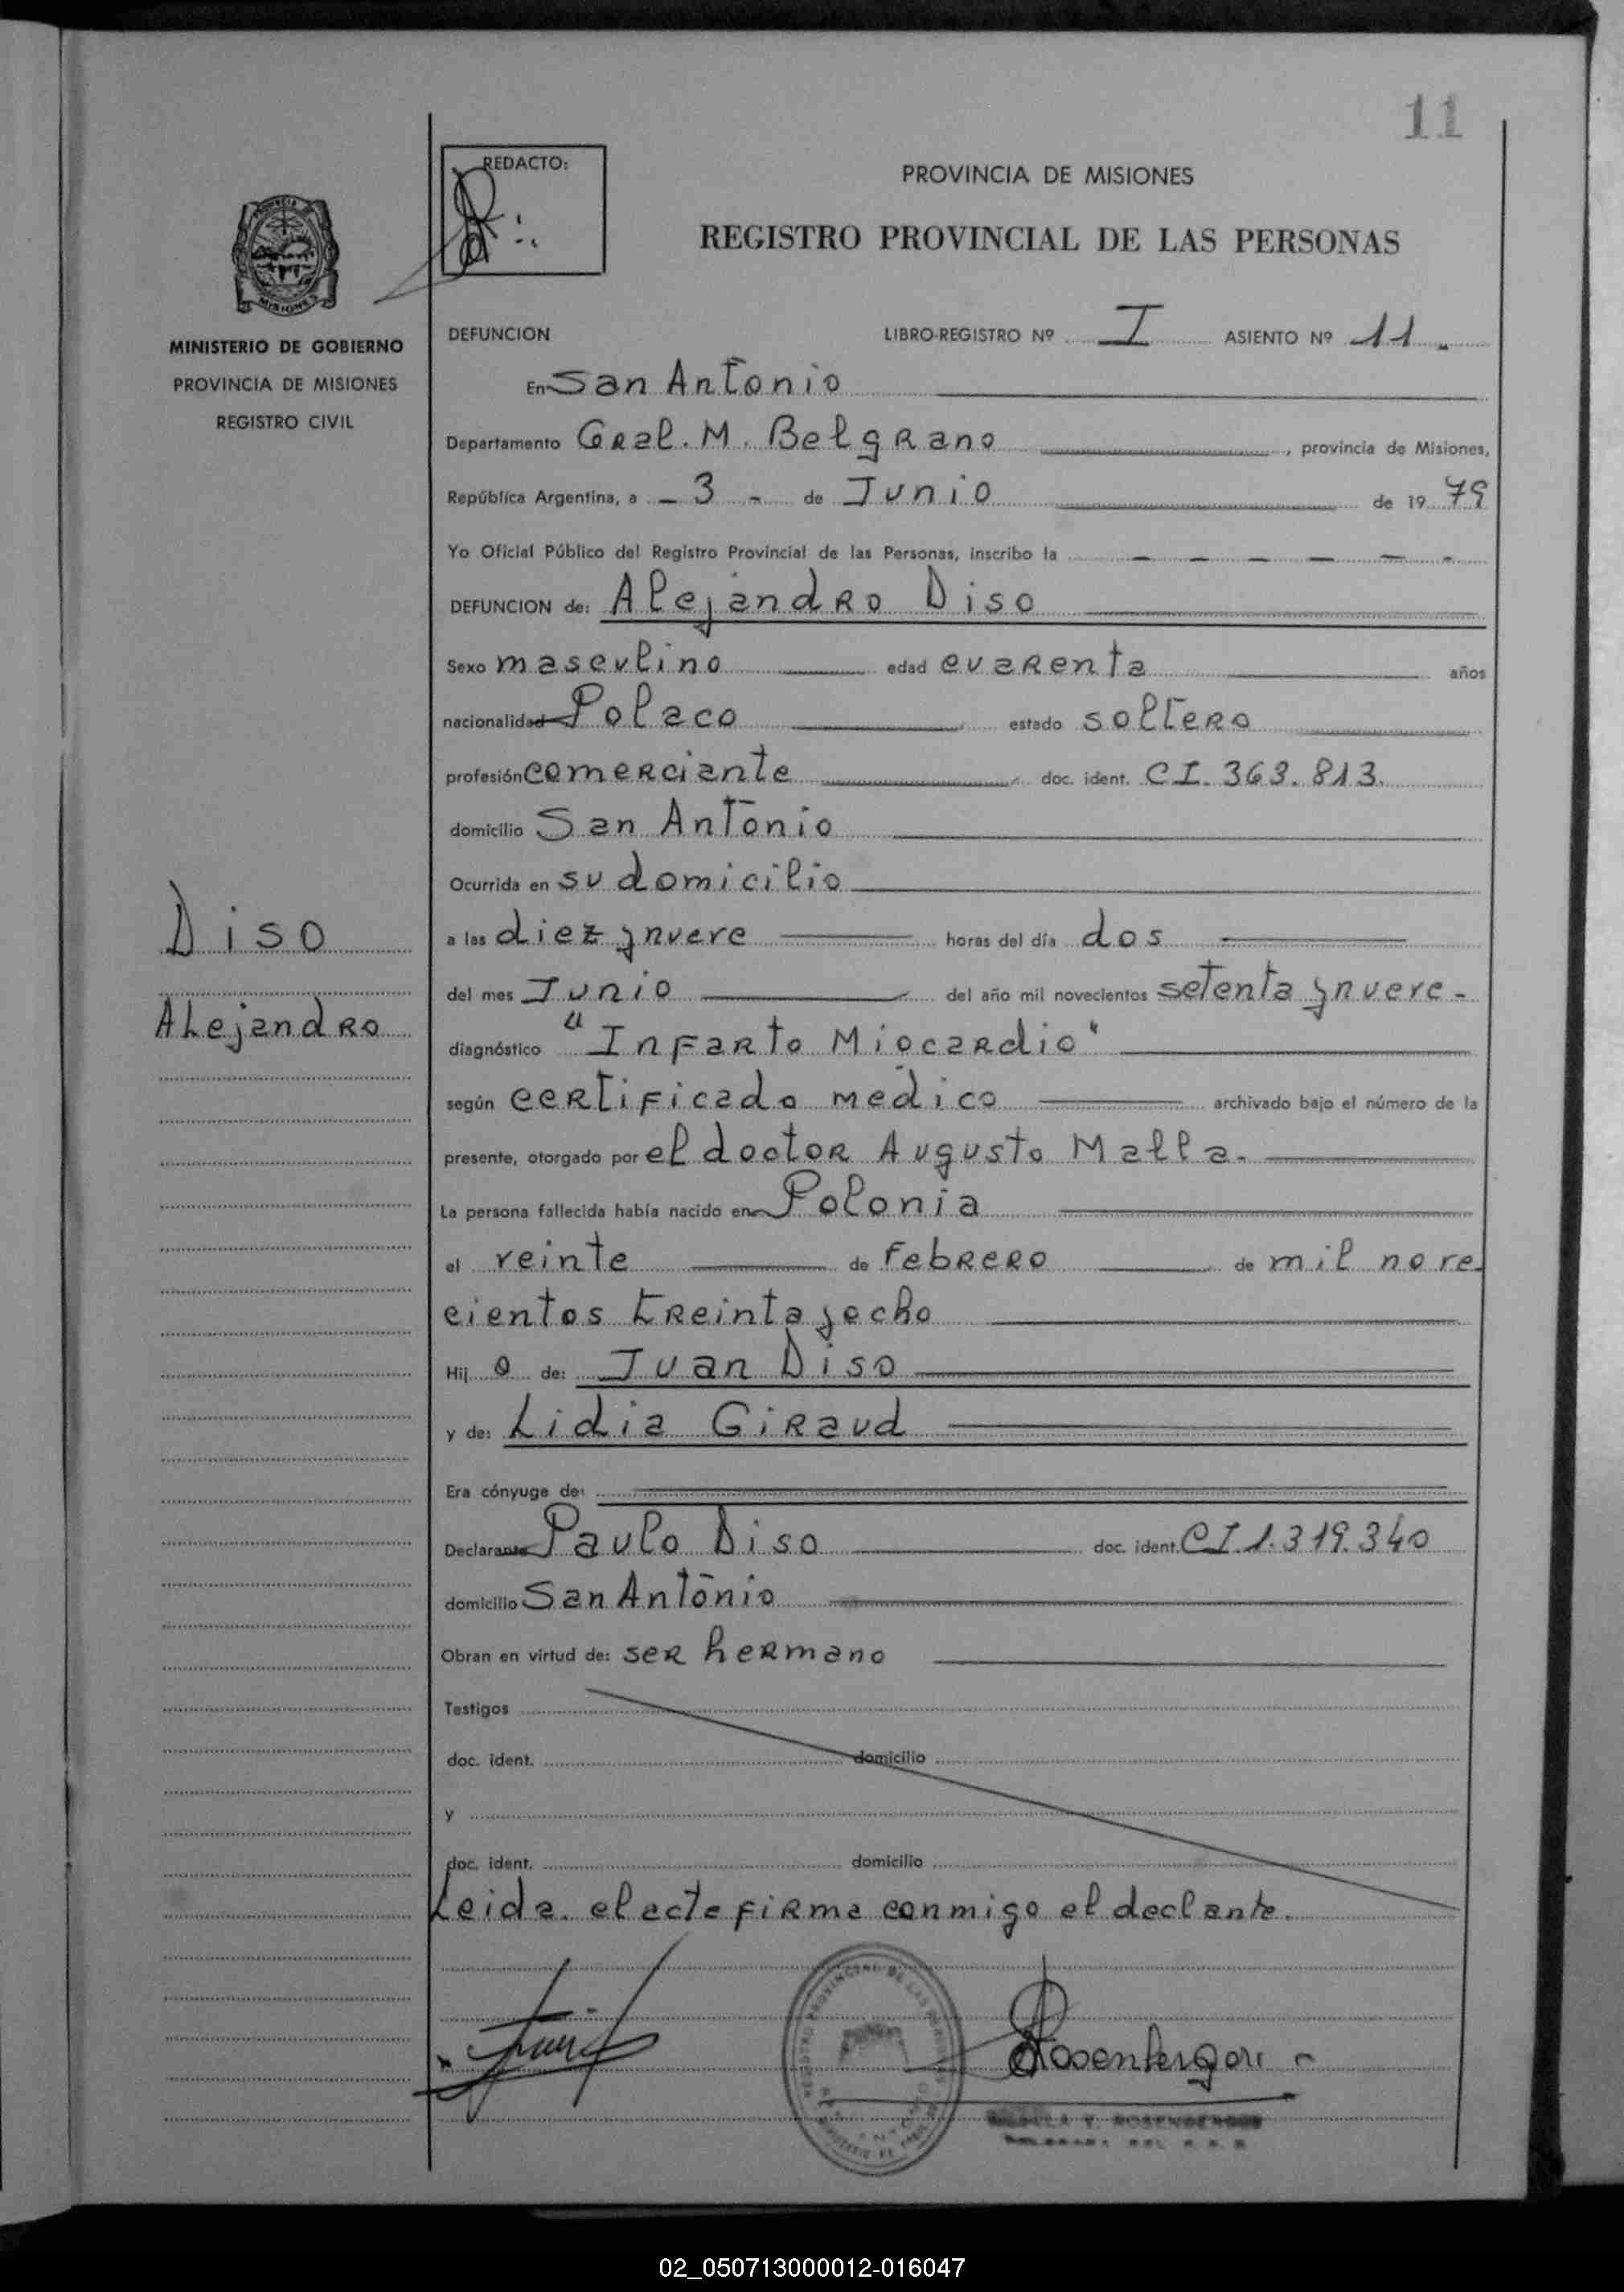 11
REDACTO:
PROVINCIA DE MISIONES
REGISTRO PROVINCIAL DE LAS PERSONAS
MISIONES
MINISTERIO DE GOBIERNO
PROVINCIA DE MISIONES
REGISTRO CIVIL
DEFUNCION LIBRO-REGISTRO Nº I ASIENTO Nº 11.
En San Antonio
Departamento Gral. M. Belgrano, provincia de Misiones,
República Argentina, a - 3 - de Junio de 19 79
Yo Oficial Público del Registro Provincial de las Personas, inscribo la - - - - - -
DEFUNCION de: Alejandro Diso
Sexo masculino edad cuarenta años
nacionalidad Polaco estado soltero
profesión comerciante doc. ident. CI. 363.813.
domicilio San Antonio
Ocurrida en su domicilio
Diso
Alejandro
a las diez y nueve horas del día dos
del mes Junio del año mil novecientos setenta y nueve -
diagnóstico "Infarto Miocardio"
según certificado médico archivado bajo el número de la
presente, otorgado por el doctor Augusto Malla.
La persona fallecida había nacido en Polonia
el veinte de Febrero de mil nove
cientos treinta y ocho
Hij o de: Juan Diso
y de: Lidia Giraud
Era cónyuge de:
Declarante Paulo Diso doc. ident. CI. 1.319.340
domicilio San Antonio
Obran en virtud de: ser hermano
Testigos
doc. ident. domicilio
y
doc. ident. domicilio
Leida el acta firma conmigo el declante.
Rosenberger
02_050713000012-016047